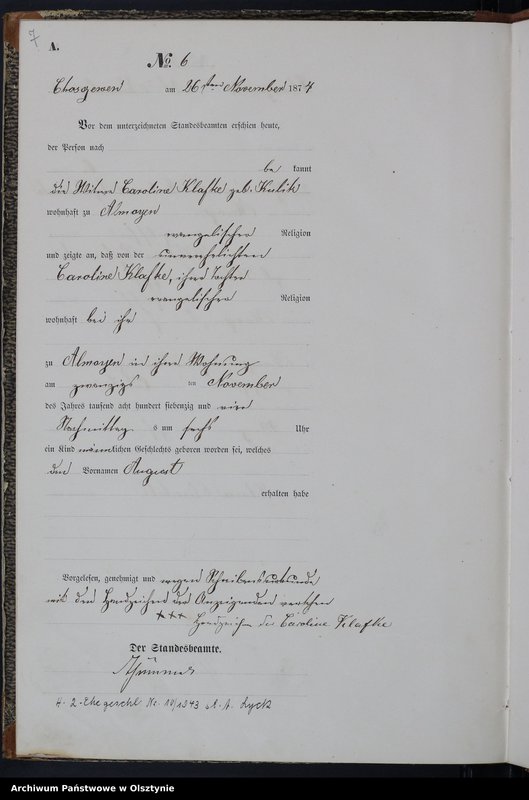 7
A.
No. 6
Chosczewen am 26ten November 1874
Vor dem unterzeichneten Standesbeamten erschien heute,
der Person nach
be kannt
die Witwe Caroline Klafke geb. Kulik
wohnhaft zu Almoyen
evangelischer Religion
und zeigte an, daß von der unverehelichten
Caroline Klafke, ihrer Tochter
evangelischer Religion
wohnhaft bei ihr
zu Almoyen in ihrer Wohnung
am zwanzigs ten November
des Jahres tausend acht hundert siebenzig und vier
Nachmittag s um sechs Uhr
ein Kind männlichen Geschlechts geboren worden sei, welches
den Vornamen August
erhalten habe
Vorgelesen, genehmigt und wegen Schreibensunkunde
mit den Handzeichen der Anzeigenden versehen
+++ Handzeichen der Caroline Klafke
Der Standesbeamte.
H. 2-Ehe geschl. Nr. 10/1943 St. A. Lyck
Archiwum Państwowe w Olsztynie